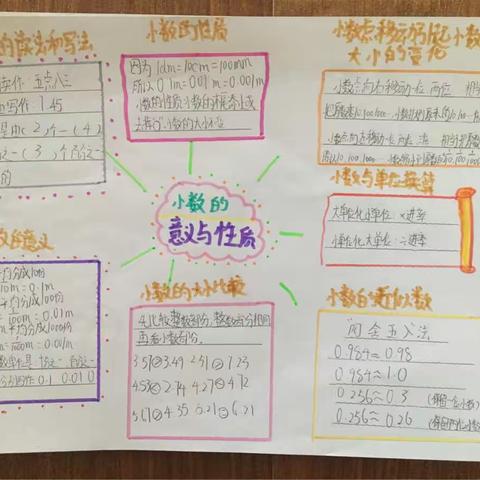 的读法和写法
读作:五点八三
写作 1.45
小数的性质
因为 1dm=10cm=100mm
所以 0.1m=0.01m=0.001m
小数的性质:小数的末尾添上或
去掉0,小数的大小不
小数点移动引起小数
大小的变化
小数点向右移动一位 两位
小数点向左移动一位 两位
小数与单位换算
大单位化小单位:×进率
小单位化大单位:÷进率
小数的
意义与性质
的意义
平均分成10份
10m=0.1m
平均分成100份
100m=0.01m
平均分成1000份
1000m=0.001m
0.1 0.01 0
小数的大小比较
先比较整数部分,整数部分相同
再看小数部分。
3.51>3.49 2.51>1.23
4.53>2.74 4.27<4.72
5.67>4.35 5.21<6.21
小数的近似数
"四舍五入法"
0.984≈0.98
0.984≈1.0
0.256≈0.3(保留一位小数)
0.256≈0.26(保留两位小数)